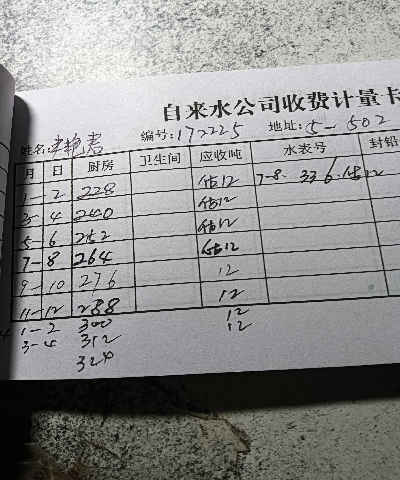 自来水公司收费计量卡
姓名: 编号:172225 地址:5-502
月 日 厨房 卫生间 应收吨 水表号 封铅
1-2 228 估12 7-8. 336.估12
3-4 240 估12
5-6 252 估12
7-8 264 估12
9-10 276 12
11-12 288 12
1-2 300 12
3-4 312 12
324